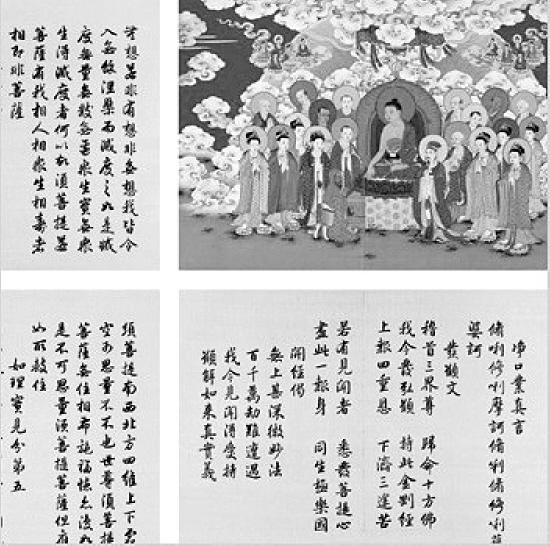 無想若非有想非無想我皆令
入無餘涅槃而滅度之如是滅
度無量無數無邊眾生實無眾
生得滅度者何以故須菩提若
菩薩有我相人相眾生相壽者
相即非菩薩
淨口業真言
修唎修唎摩訶修唎修修唎薩
娑訶
發願文
稽首三界尊 歸命十方佛
我今發弘願 持此金剛經
上報四重恩 下濟三途苦
若有見聞者 悉發菩提心
盡此一報身 同生極樂國
開經偈
無上甚深微妙法
百千萬劫難遭遇
我今見聞得受持
願解如來真實義
須菩提南西北方四維上下虛
空可思量不不也世尊須菩提
菩薩無住相布施福德亦復如
是不可思量須菩提菩薩但應
如所教住
如理實見分第五